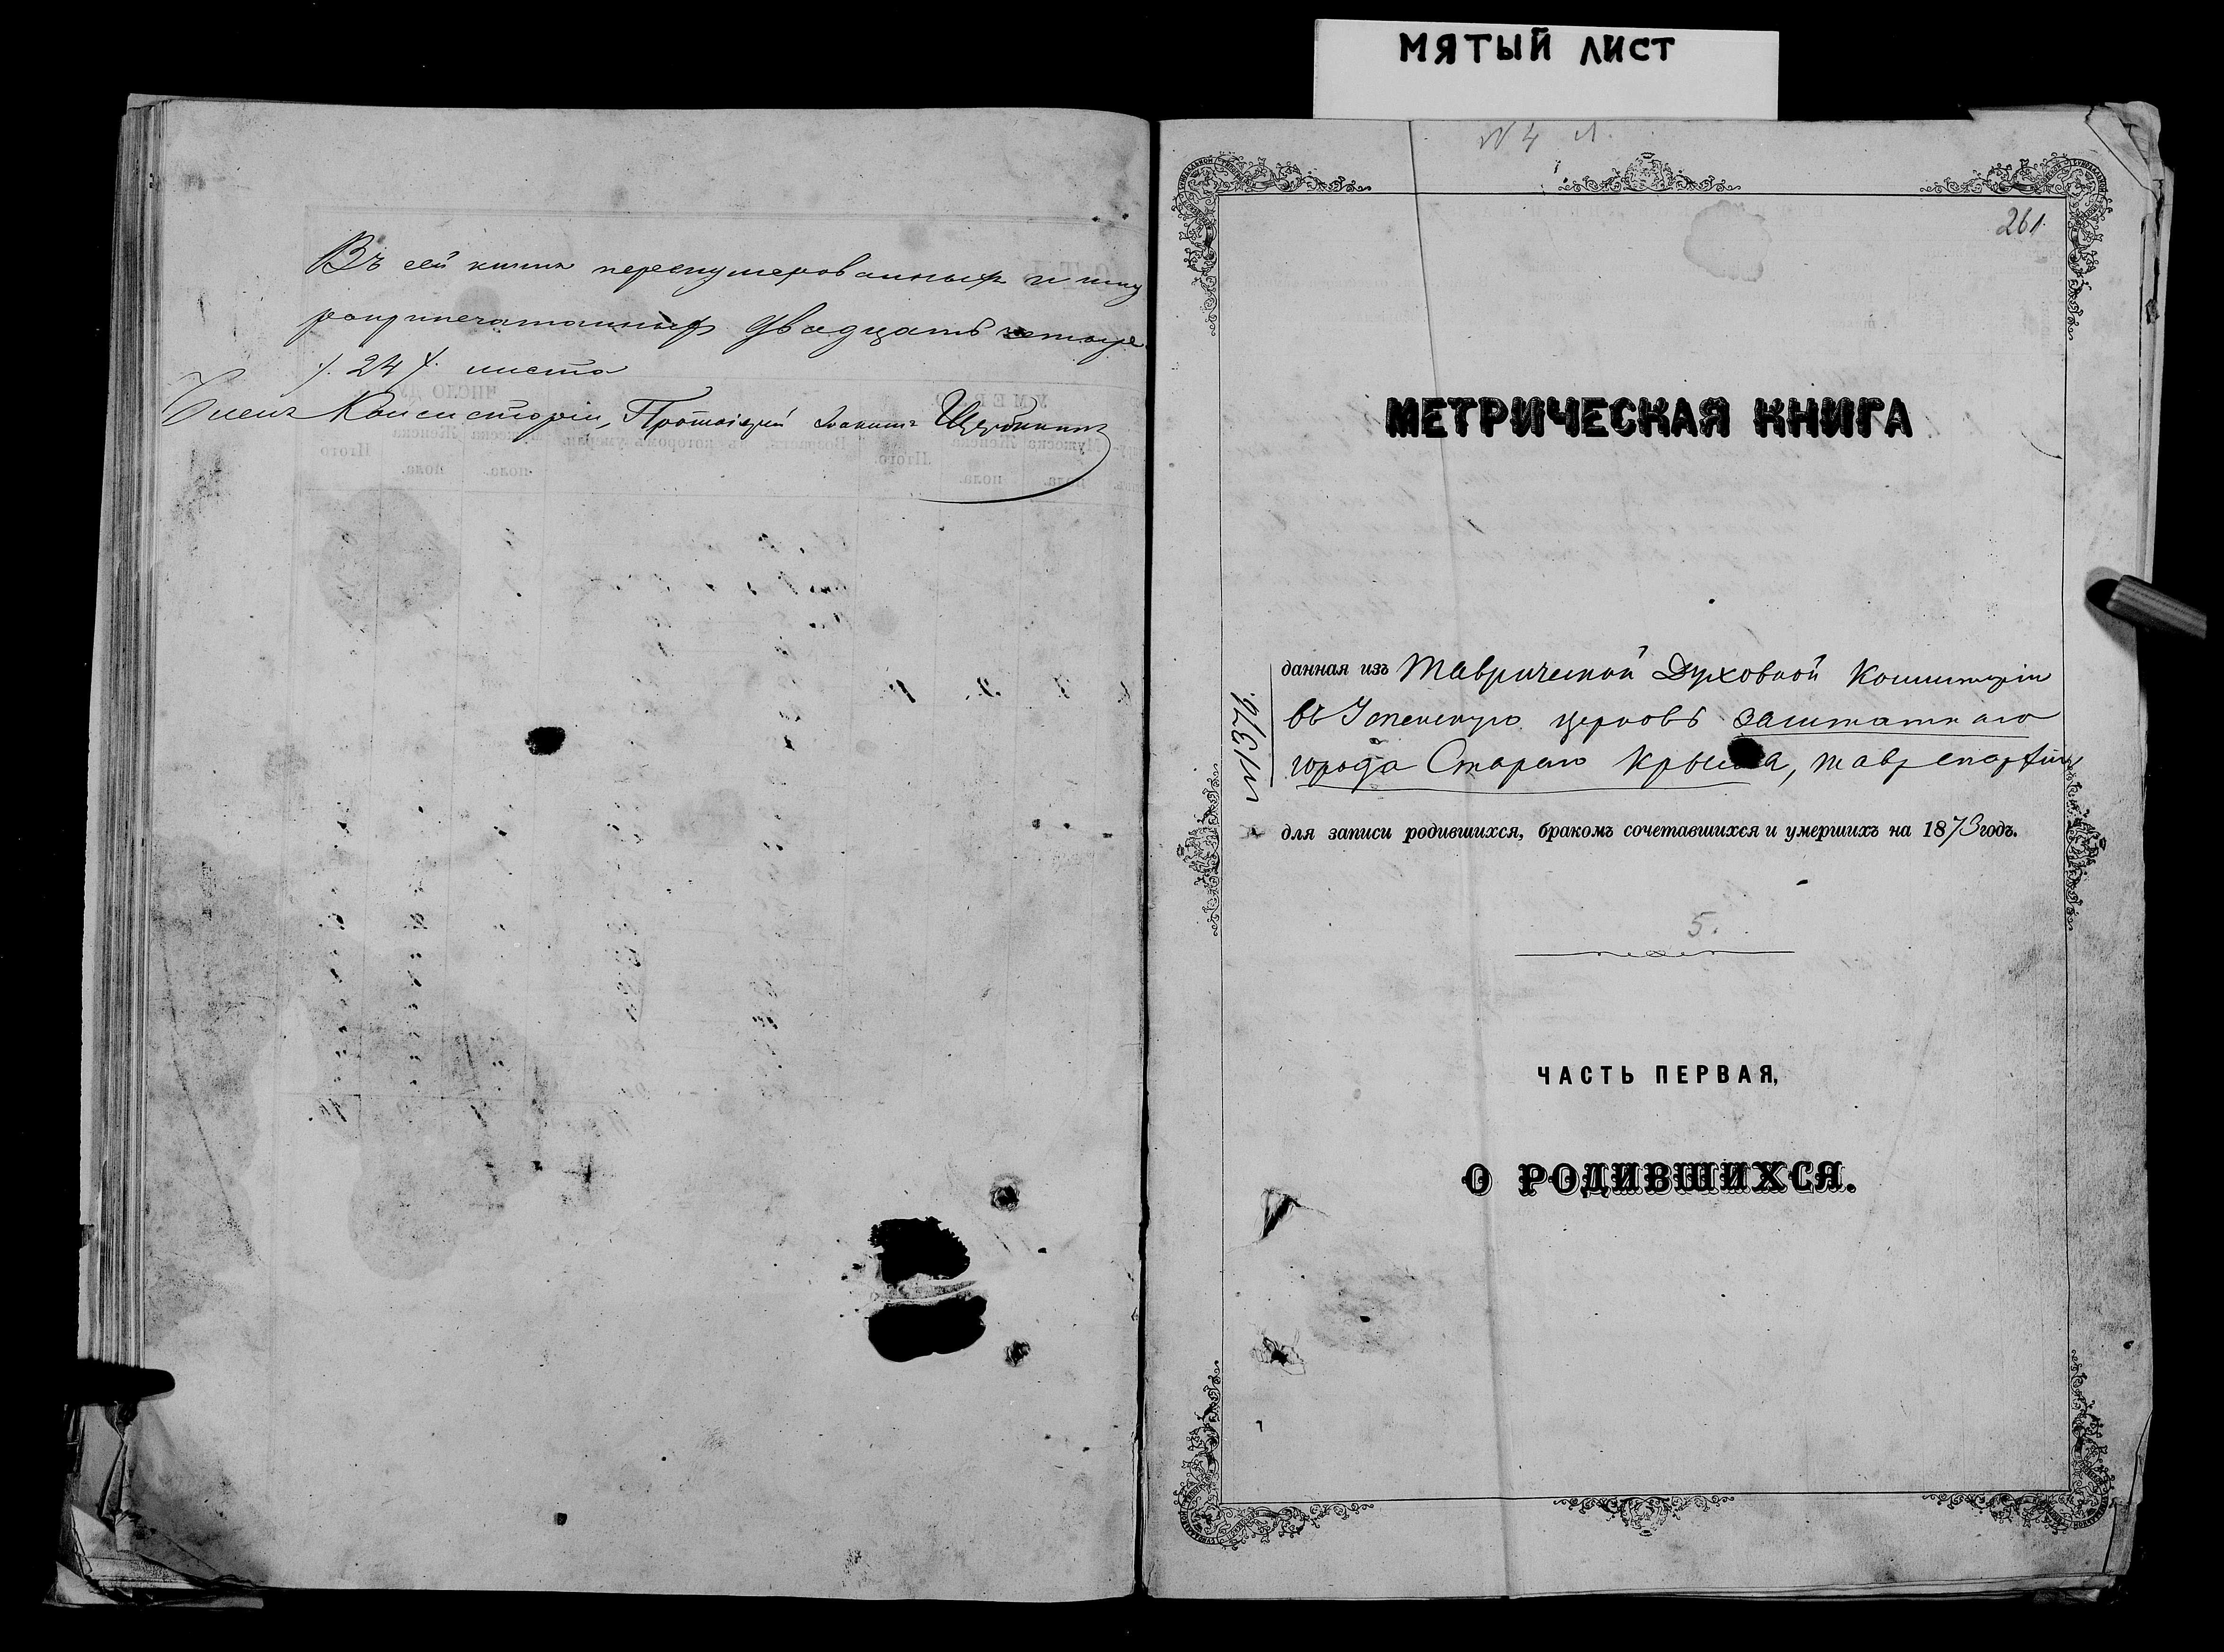 МЯТЫЙ ЛИСТ
Въ сей книгѣ перенумерованныхъ и шну
роприпечатанныхъ двадцать четыре
/. 24 /. листа
Членъ Консисторіи, Протоіерей Іоаннъ Щербининъ
№ 4 л.
261.
МЕТРИЧЕСКАЯ КНИГА
данная изъ Таврической Духовной Консисторіи
въ Успенскую церковь заштатнаго
города Стараго Крыма,
№ 1376.
для записи родившихся, бракомъ сочетавшихся и умершихъ на 1873 годъ.
5.
ЧАСТЬ ПЕРВАЯ,
О РОДИВШИХСЯ.